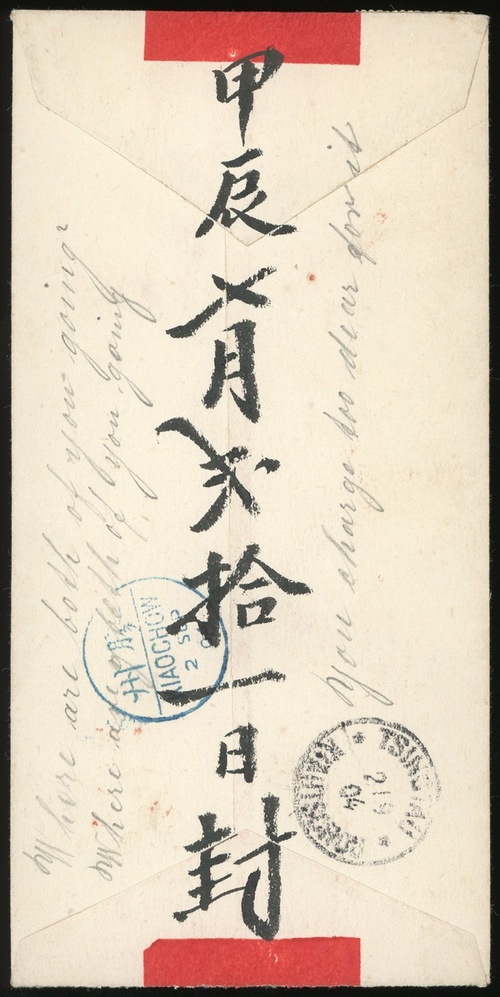 甲辰七月弍拾一日封
Where are both of you going?
Where are both of you going
You charge too dear for it
膠州
KIAOCHOW
2 SEP
TSINGTAU
2/9
04